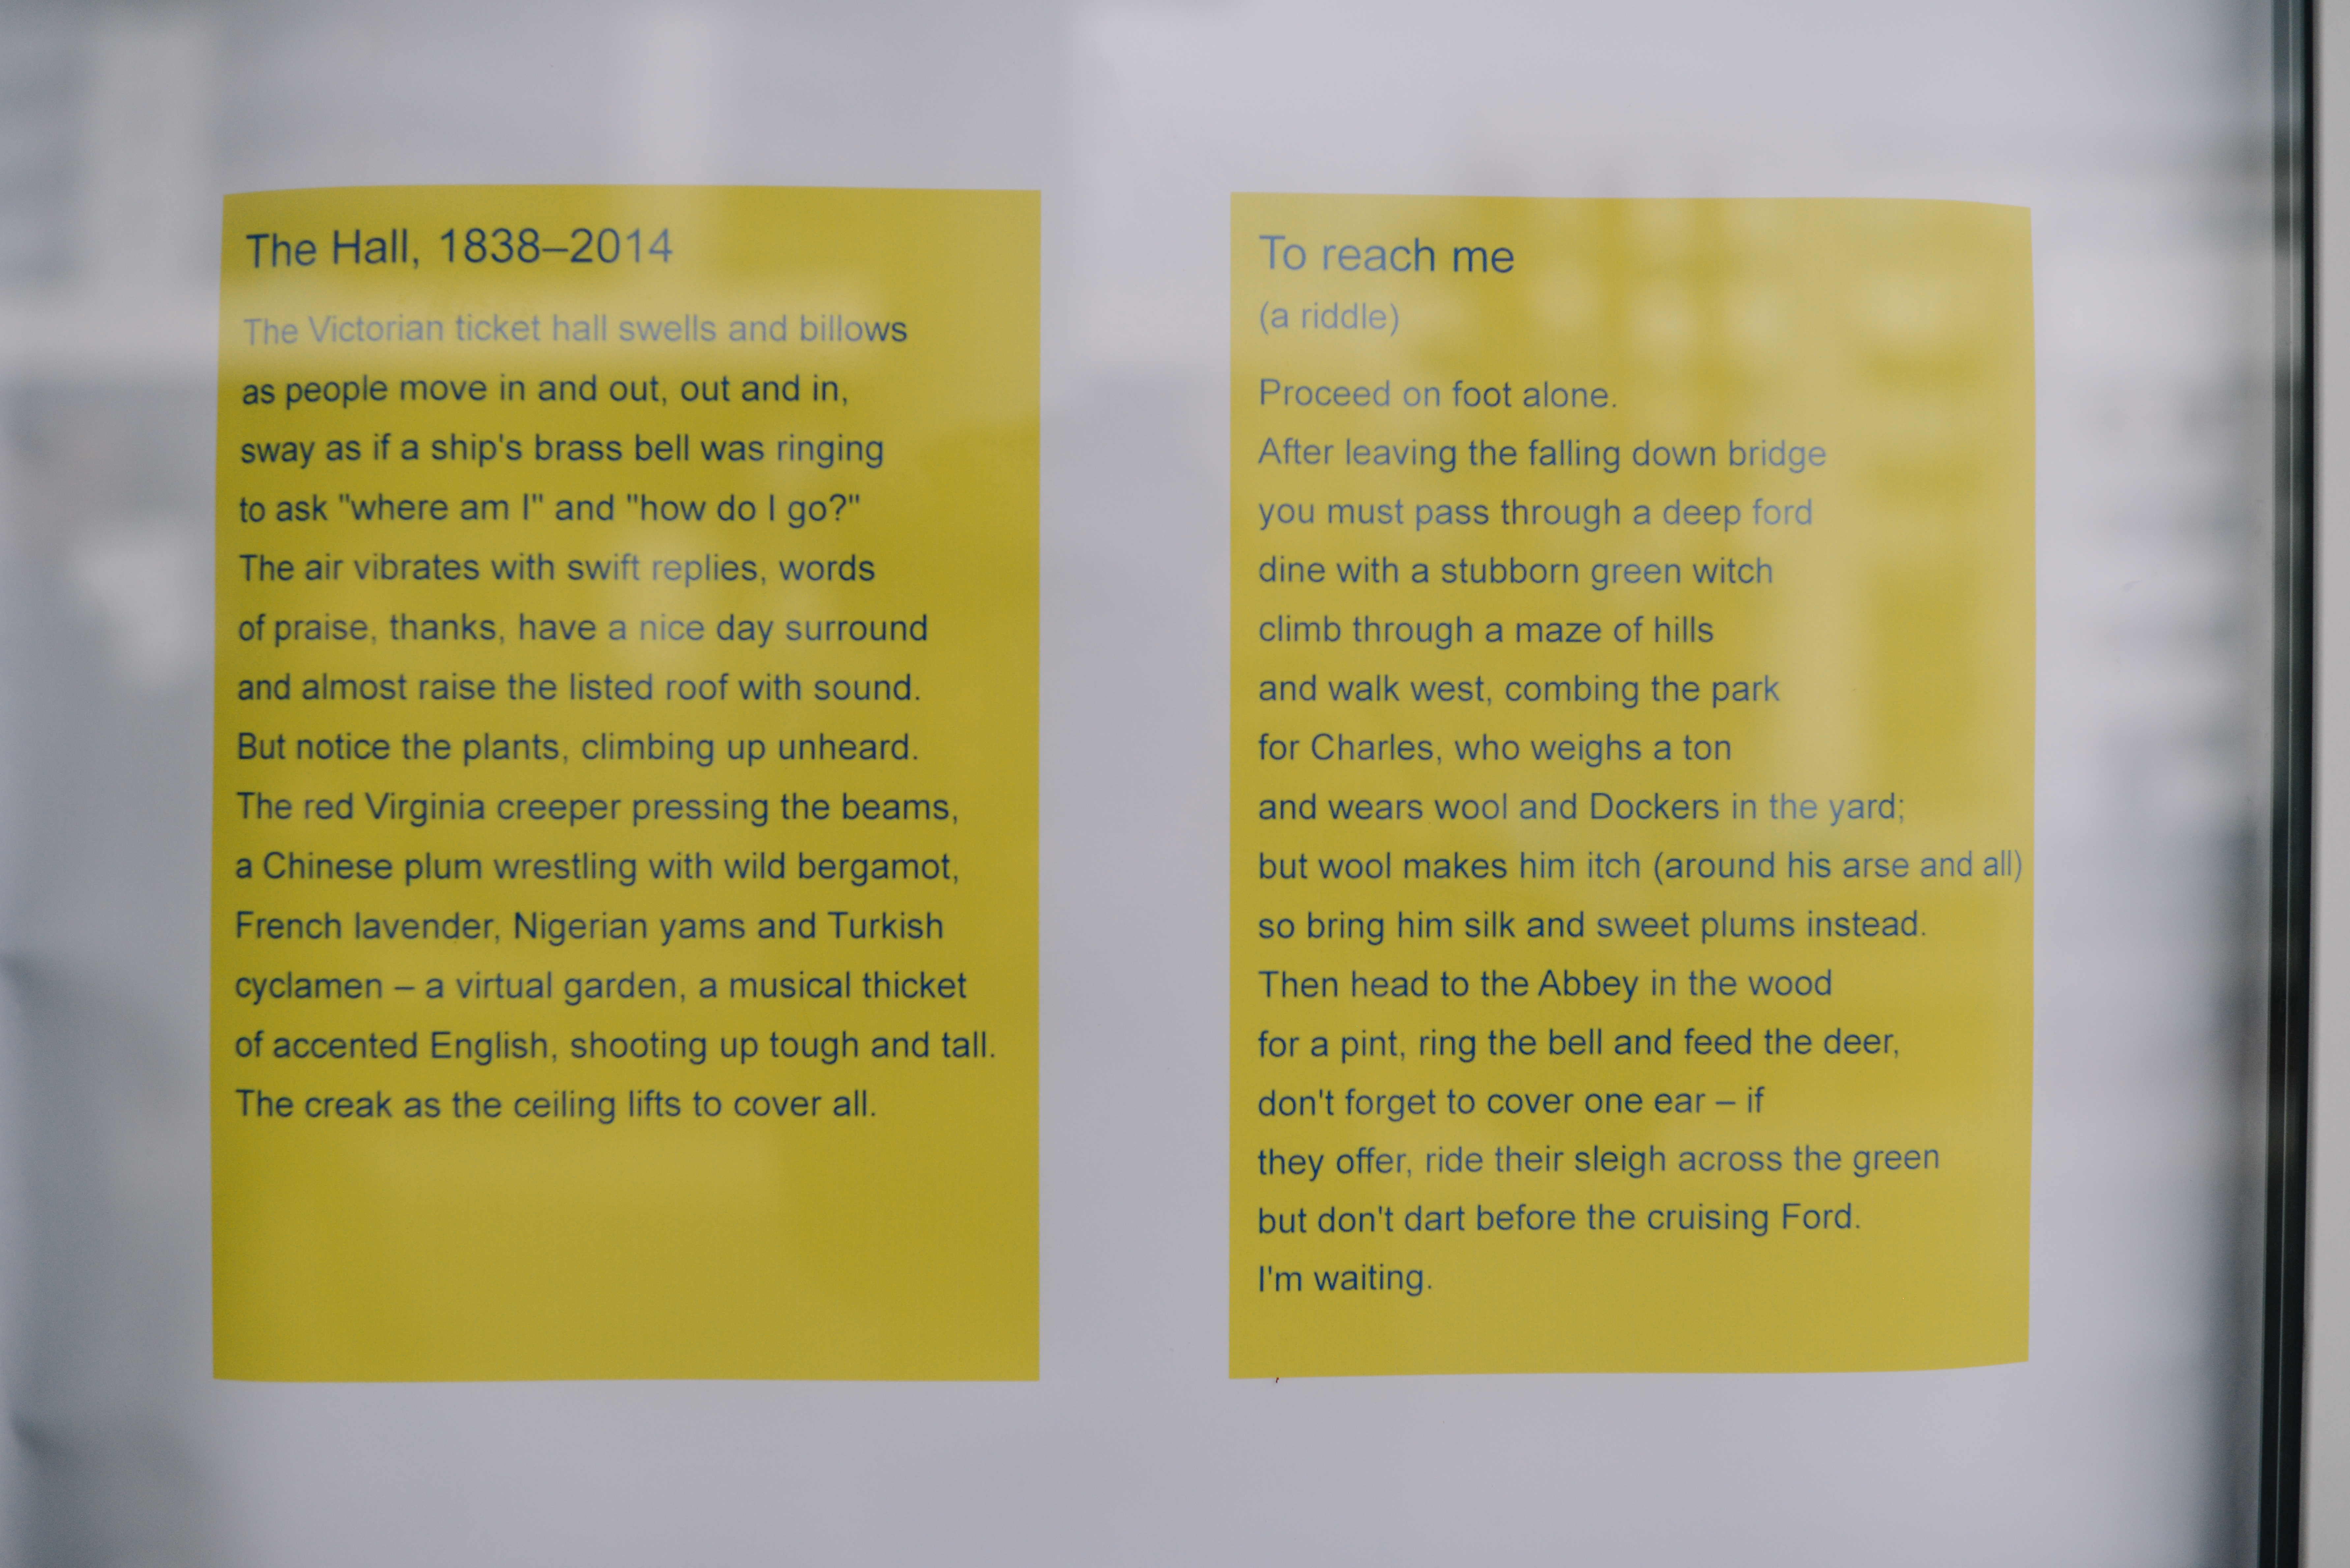 The Hall, 1838–2014
The Victorian ticket hall swells and billows
as people move in and out, out and in,
sway as if a ship's brass bell was ringing
to ask "where am I" and "how do I go?"
The air vibrates with swift replies, words
of praise, thanks, have a nice day surround
and almost raise the listed roof with sound.
But notice the plants, climbing up unheard.
The red Virginia creeper pressing the beams,
a Chinese plum wrestling with wild bergamot,
French lavender, Nigerian yams and Turkish
cyclamen – a virtual garden, a musical thicket
of accented English, shooting up tough and tall.
The creak as the ceiling lifts to cover all.
To reach me
(a riddle)
Proceed on foot alone.
After leaving the falling down bridge
you must pass through a deep ford
dine with a stubborn green witch
climb through a maze of hills
and walk west, combing the park
for Charles, who weighs a ton
and wears wool and Dockers in the yard;
but wool makes him itch (around his arse and all)
so bring him silk and sweet plums instead.
Then head to the Abbey in the wood
for a pint, ring the bell and feed the deer,
don't forget to cover one ear – if
they offer, ride their sleigh across the green
but don't dart before the cruising Ford.
I'm waiting.